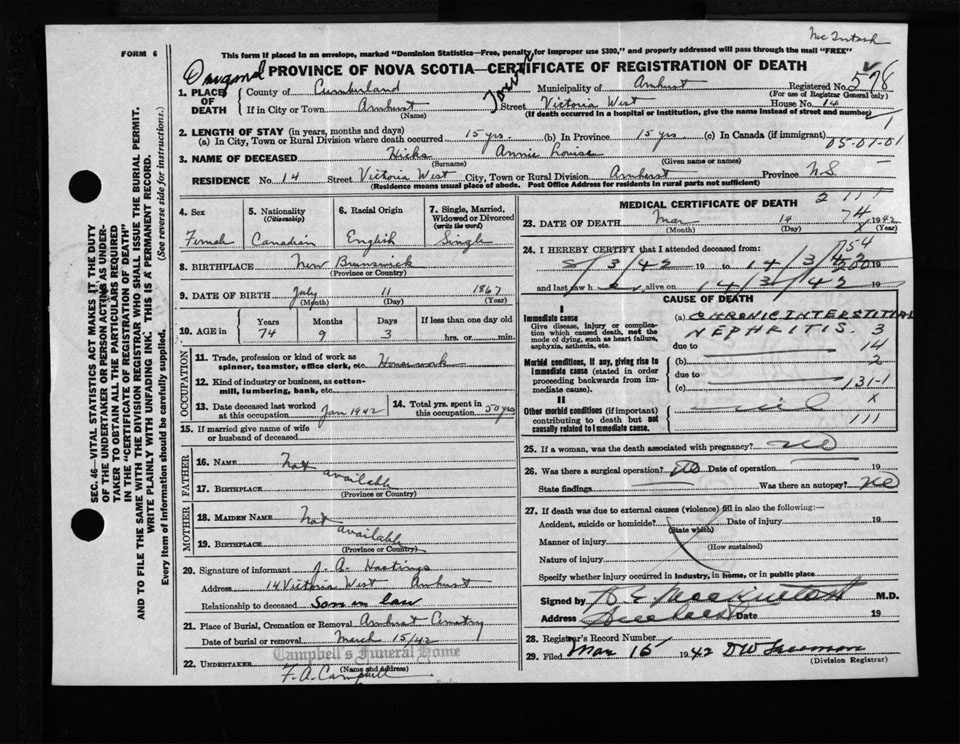 McIntosh
FORM 6
This form if placed in an envelope, marked "Dominion Statistics—Free, penalty for improper use $300," and properly addressed will pass through the mail "FREE"
PROVINCE OF NOVA SCOTIA—CERTIFICATE OF REGISTRATION OF DEATH
1. PLACE OF DEATH
County of Cumberland Municipality of Amherst Registered No. 578
(For use of Registrar General only)
If in City or Town Amherst Street Victoria West House No. 14
(Name) (If death occurred in a hospital or institution, give the name instead of street and number)
1
2. LENGTH OF STAY (in years, months and days)
(a) In City, Town or Rural Division where death occurred 15 yrs. (b) In Province 15 yrs (c) In Canada (if immigrant)
05-01-01
3. NAME OF DECEASED Hicks Annie Louise
(Surname) (Given name or names)
RESIDENCE No. 14 Street Victoria West City, Town or Rural Division Amherst Province N.S.
(Residence means usual place of abode. Post Office Address for residents in rural parts not sufficient)
4. Sex
Female
5. Nationality
(Citizenship)
Canadian
6. Racial Origin
English
7. Single, Married, Widowed or Divorced
(write the word)
Single
8. BIRTHPLACE New Brunswick
(Province or Country)
9. DATE OF BIRTH July 11 1867
(Month) (Day) (Year)
10. AGE in Years Months Days If less than one day old
74 9 3 hrs. or min.
OCCUPATION
11. Trade, profession or kind of work as
spinner, teamster, office clerk, etc. Housework
12. Kind of industry or business, as cotton-
mill, lumbering, bank, etc.
13. Date deceased last worked
at this occupation Jan 1942
14. Total yrs. spent in
this occupation 50 yrs
15. If married give name of wife
or husband of deceased
FATHER
16. NAME Not available
17. BIRTHPLACE
(Province or Country)
MOTHER
18. MAIDEN NAME Not available
19. BIRTHPLACE
(Province or Country)
20. Signature of informant J. A. Hastings
Address 14 Victoria West Amherst
Relationship to deceased Son in law
21. Place of Burial, Cremation or Removal Amherst Cemetry
Date of burial or removal March 15/42
Campbell's Funeral Home
22. UNDERTAKER F. A. Campbell
(Name and Address)
MEDICAL CERTIFICATE OF DEATH
2 111
74
23. DATE OF DEATH Mar 14 1942
(Month) (Day) (Year)
24. I HEREBY CERTIFY that I attended deceased from:
754
8/3/42 19 to 14/3/42 19
200
and last saw h alive on 14/3/42 19
CAUSE OF DEATH
I
Immediate cause
Give disease, injury or complica-
tion which caused death, not the
mode of dying, such as heart failure,
asphyxia, asthenia, etc.
(a) CHRONIC INTERSTITIAL
NEPHRITIS. 3
due to 14
Morbid conditions, if any, giving rise to
immediate cause (stated in order
proceeding backwards from im-
mediate cause).
(b) 2
due to
(c) 131-1
x
II
Other morbid conditions (if important)
contributing to death but not
causally related to immediate cause.
nil
111
25. If a woman, was the death associated with pregnancy? no
26. Was there a surgical operation? no Date of operation 19
State findings Was there an autopsy? no
27. If death was due to external causes (violence) fill in also the following:—
Accident, suicide or homicide? Date of injury 19
(State which)
Manner of injury
(How sustained)
Nature of injury
Specify whether injury occurred in industry, in home, or in public place
Signed by D E MacKintosh M.D.
Address Amherst Date 19
28. Registrar's Record Number
29. Filed Mar 15 1942
(Division Registrar)
SEC. 46—VITAL STATISTICS ACT MAKES IT THE DUTY
OF THE UNDERTAKER OR PERSON ACTING AS UNDER-
TAKER TO OBTAIN ALL THE PARTICULARS REQUIRED
IN THE "CERTIFICATE OF REGISTRATION OF DEATH"
AND TO FILE THE SAME WITH THE DIVISION REGISTRAR WHO SHALL ISSUE THE BURIAL PERMIT.
WRITE PLAINLY WITH UNFADING INK. THIS IS A PERMANENT RECORD.
Every item of information should be carefully supplied. (See reverse side for instructions.)